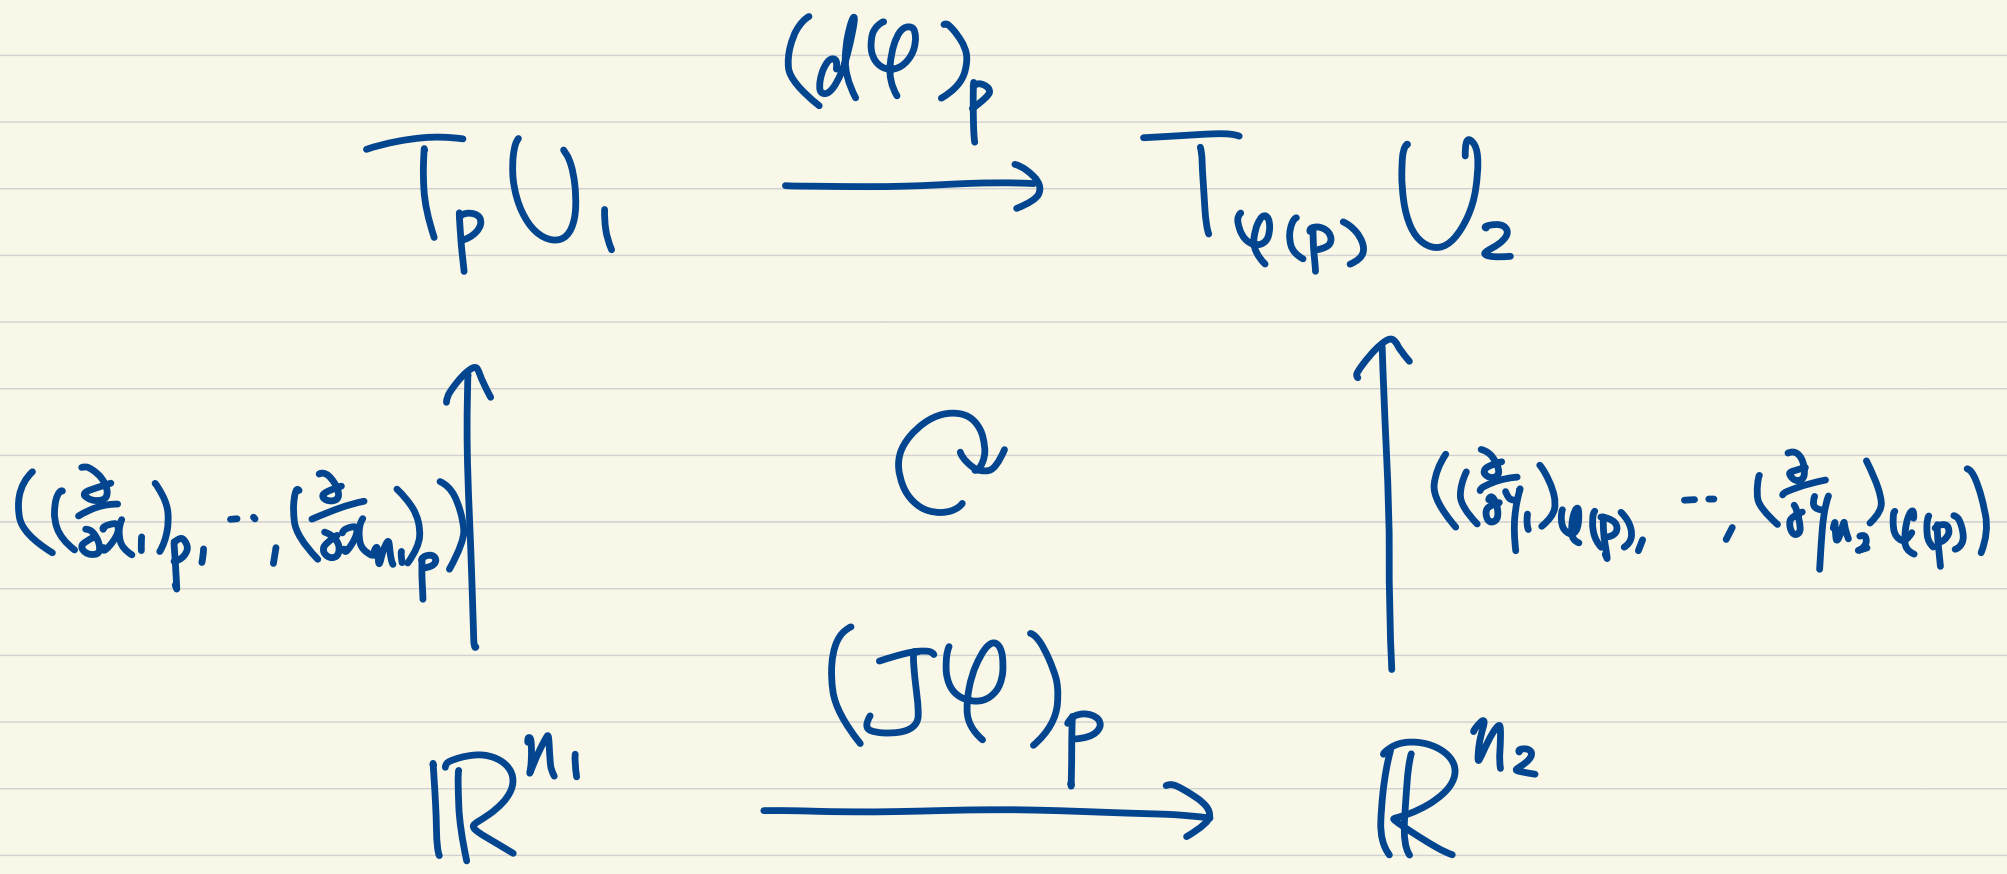 (dφ)_p
T_p U_1 → T_{φ(p)} U_2
((∂/∂x_1)_p, ..., (∂/∂x_{n_1})_p) ↑ ↻ ↑ ((∂/∂y_1)_{φ(p)}, ..., (∂/∂y_{n_2})_{φ(p)})
(Jφ)_p
ℝ^{n_1} → ℝ^{n_2}